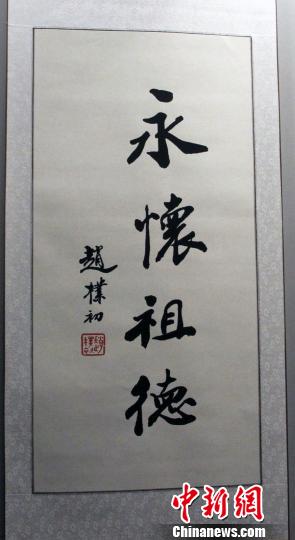 永懷祖德
趙樸初
中新網
Chinanews.com